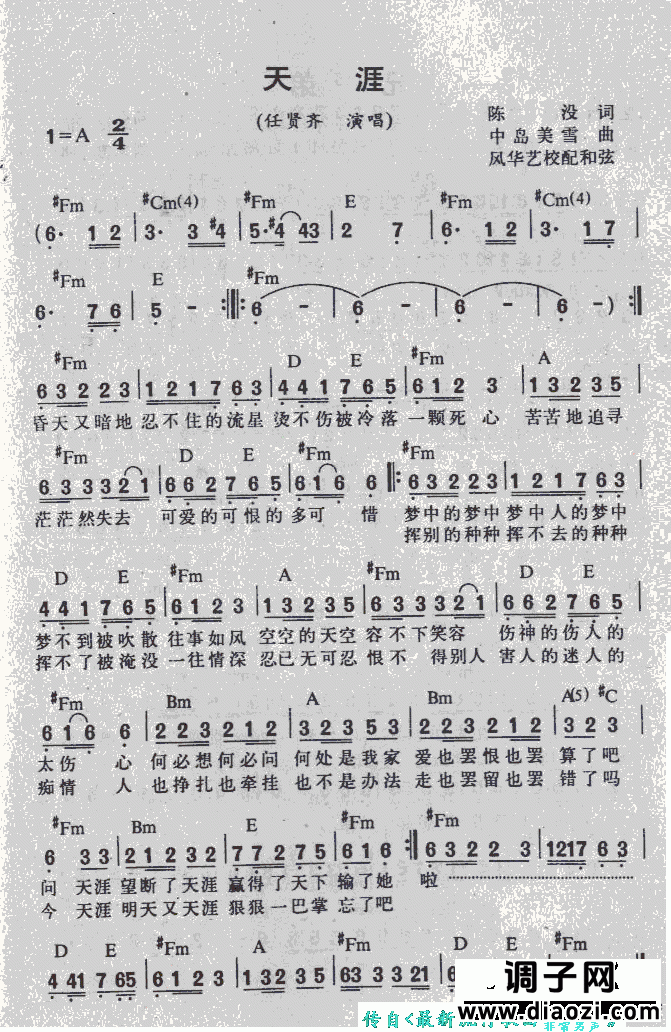 天 涯
(任贤齐 演唱)
1=A 2/4
陈 没 词
中岛美雪 曲
风华艺校配和弦
#Fm #Cm(4) #Fm E #Fm #Cm(4)
(6· 1 2 | 3· 3 #4 | 5·#4 43 | 2 7 | 6· 1 2 | 3· 1 7 |
#Fm E #Fm
6· 7 6 | 5 - :‖: 6 - | 6 - | 6 - | 6 -) :‖
#Fm D E #Fm A
6 3 2 2 3 | 1 2 1 7 6 3 | 4 4 1 7 6 5 | 6 1 2 3 | 1 3 2 3 5 |
昏天又暗地 忍不住的流星 烫不伤被冷落 一颗死心 苦苦地追寻
#Fm D E #Fm #Fm
6 3 3 3 2 1 | 6 6 2 7 6 5 | 6 1 6 6 ‖: 6 3 2 2 3 | 1 2 1 7 6 3 |
茫茫然失去 可爱的可恨的 多可 惜 梦中的梦中 梦中人的梦中
挥别的种种 挥不去的种种
D E #Fm A #Fm D E
4 4 1 7 6 5 | 6 1 2 3 | 1 3 2 3 5 | 6 3 3 3 2 1 | 6 6 2 7 6 5 |
梦不到被吹散 往事如风 空空的天空 容不下笑容 伤神的伤人的
挥不了被淹没 一往情深 忍已无可忍 恨不 得别人 害人的迷人的
#Fm Bm A Bm A(5) #C
6 1 6 6 | 2 2 3 2 1 2 | 3 2 3 5 3 | 2 2 3 2 1 2 | 3 2 3 |
太伤 心 何必想何必问 何处是我家 爱也罢恨也罢 算了吧
痴情 人 也挣扎也牵挂 也不是办法 走也罢留也罢 错了吗
#Fm Bm E #Fm #Fm
6 3 3 | 2 1 2 3 2 | 7 7 2 7 5 | 6 1 6 :‖ 6 3 2 2 3 | 1217 6 3 |
问 天涯 望断了天涯 赢得了天下 输了她 啦
今 天涯 明天又天涯 狠狠一巴掌 忘了吧
D E #Fm A #Fm D E #Fm
4 41 7 65 | 6 1 2 3 | 1 3 2 3 5 | 63 3 3 21 | 6
调子网
www.diaozi.com